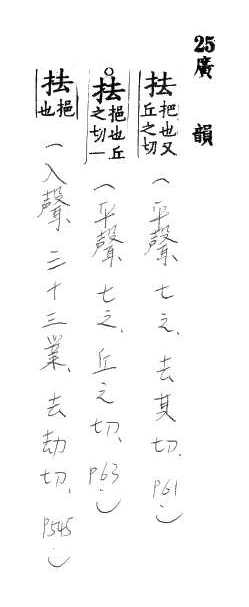 25 廣韻
抾 挹也又丘之切 (平聲 七之、去其切、P61.)
抾 挹也丘之切一 (平聲 七之、丘之切、P63.)
抾 挹也 (入聲 三十三業、去劫切、P545.)